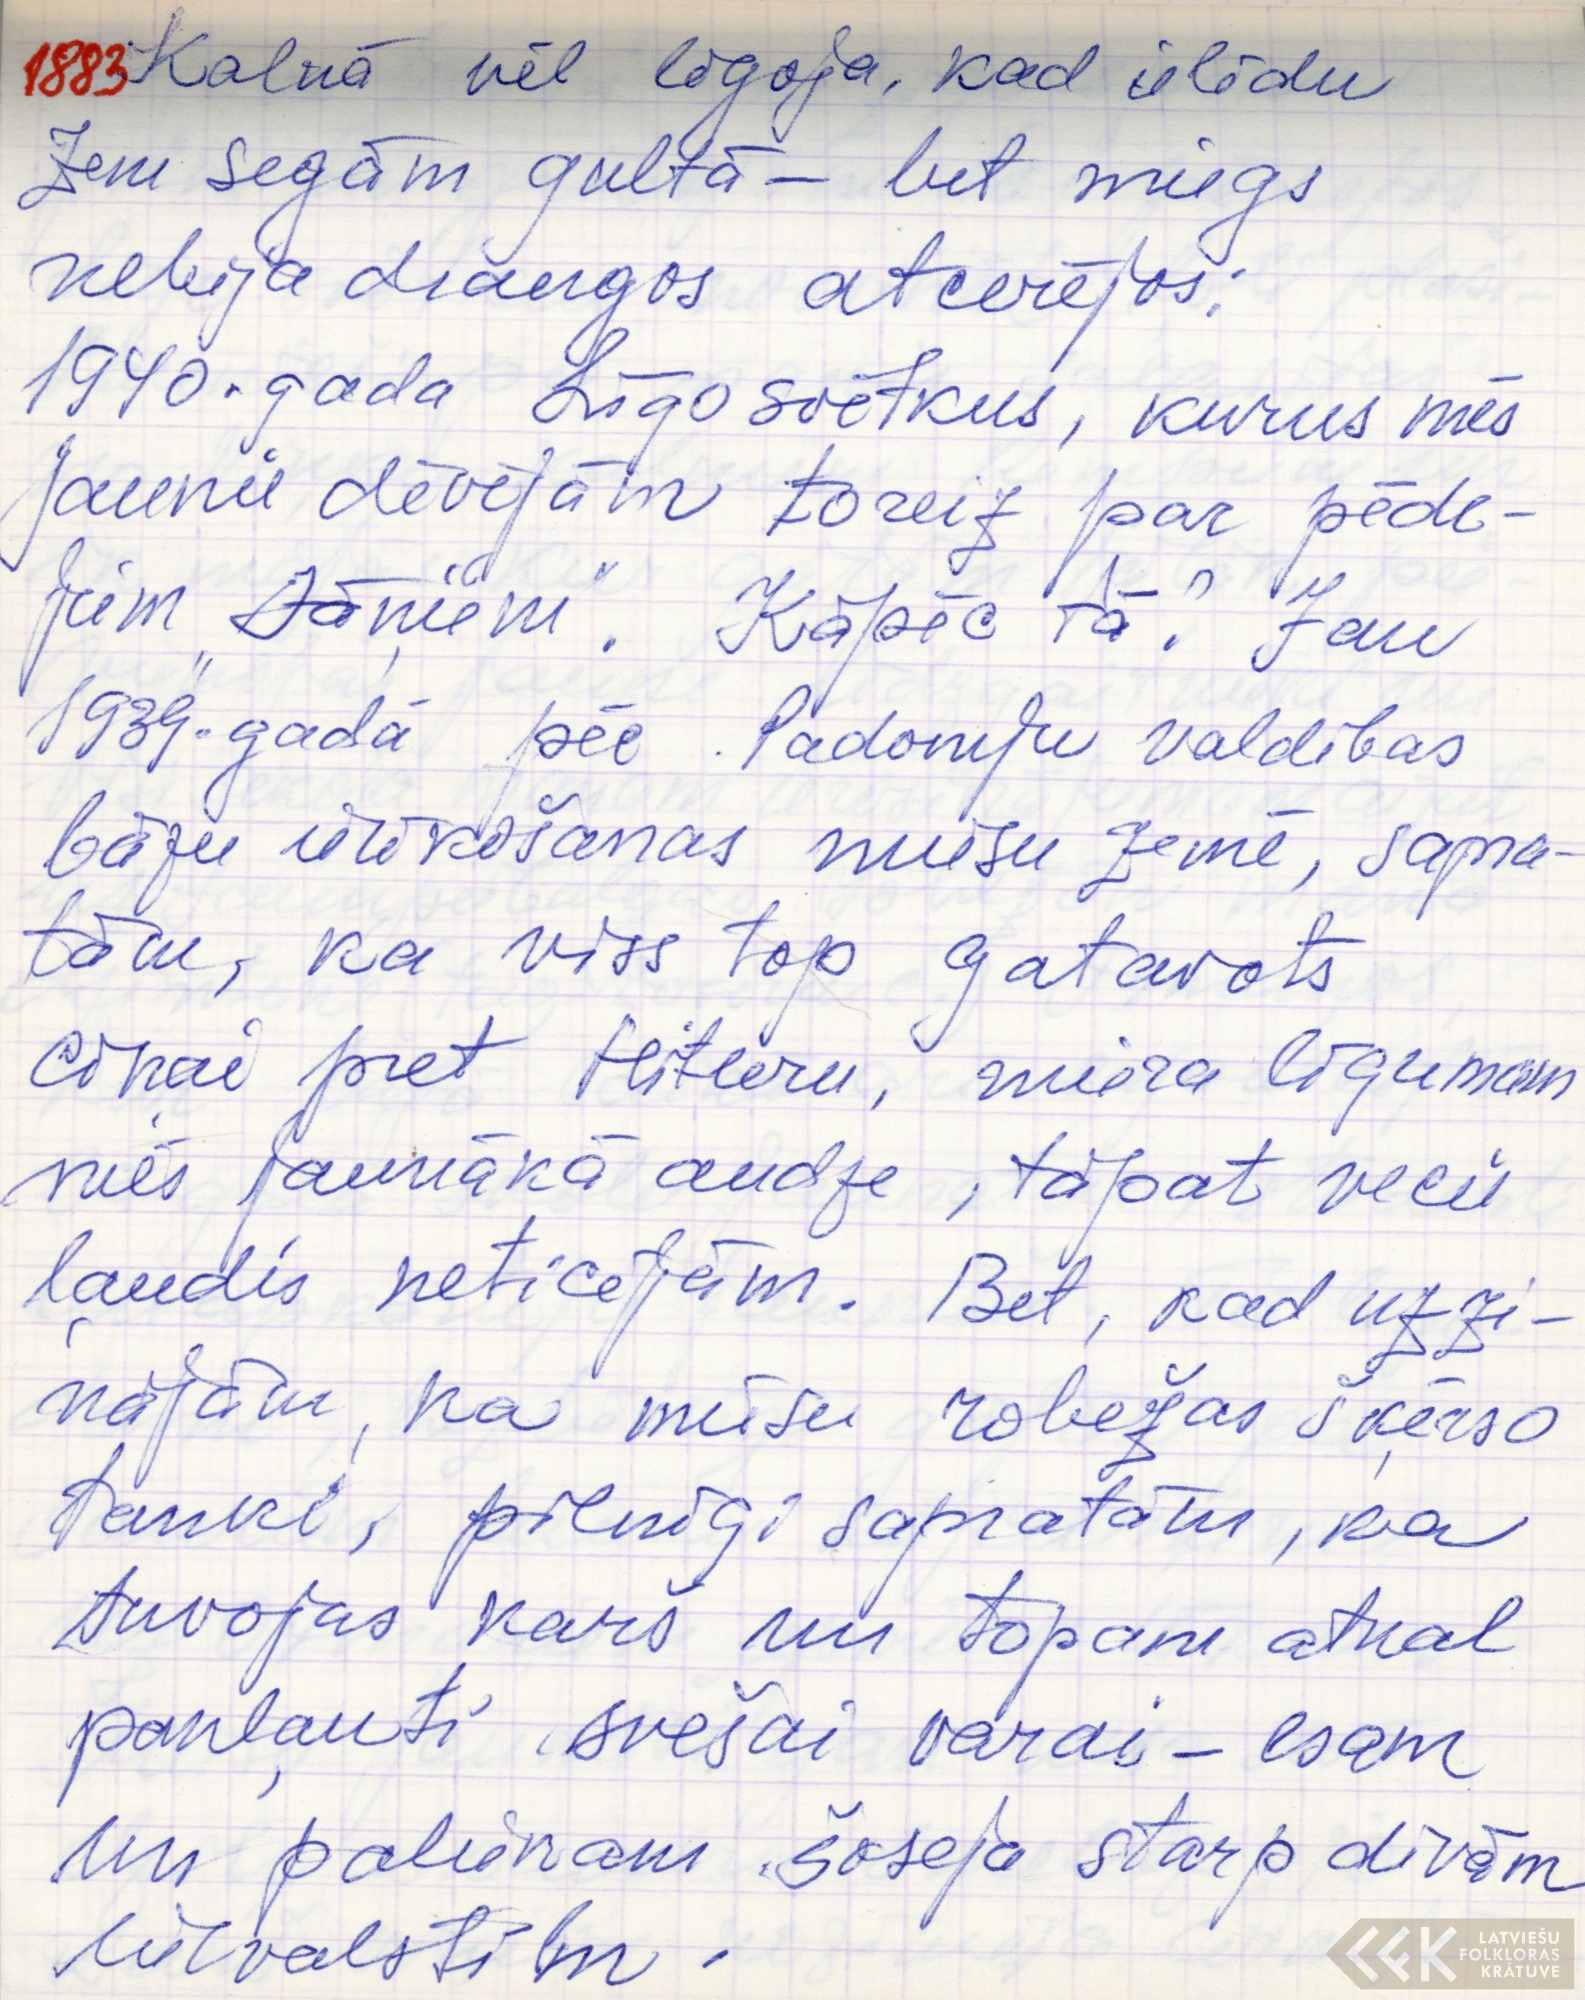 1883 Kalnā vēl līgoja, kad ielīdu
zem segām gultā – bet miegs
nebija draugos atcerējos:
1940. gada Līgo svētkus, kurus mēs
jaunie dēvējām toreiz par pēdē-
jiem „Jāņiem". Kāpēc tā? Jau
1939. gadā pēc Padomju valdības
bāzu ierīkošanas mūsu zemē, sapra-
tām, ka viss top gatavots
cīņai pret Hitleru, miera līgumam
mēs jaunākā audze, tāpat vecie
ļaudis neticējām. Bet, kad uzzi-
nājām, ka mūsu robežas šķērso
tanki, pilnīgi sapratām, ka
tuvojas karš un topam atkal
pakļauti svešai varai – esam
un paliekam šoseja starp divām
lielvalstīm.
LATVIEŠU
FOLKLORAS
KRĀTUVE